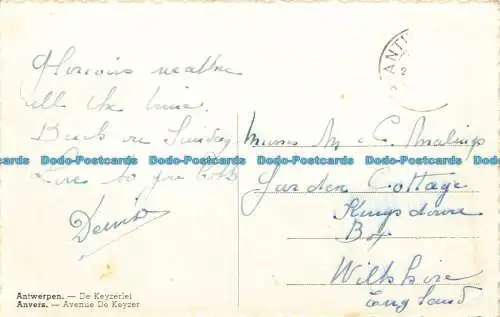 Glorious weather
all the time.
Back on Sunday
Love to you both
Denis
Antwerpen. — De Keyzerlei
Anvers. — Avenue De Keyzer
ANT
2
M & C. Malings
Garden Cottage
Kingsdown
Box
Wiltshire
England
Dodo-Postcards Dodo-Postcards Dodo-Postcards Dodo-Postcards Dodo-Postcards